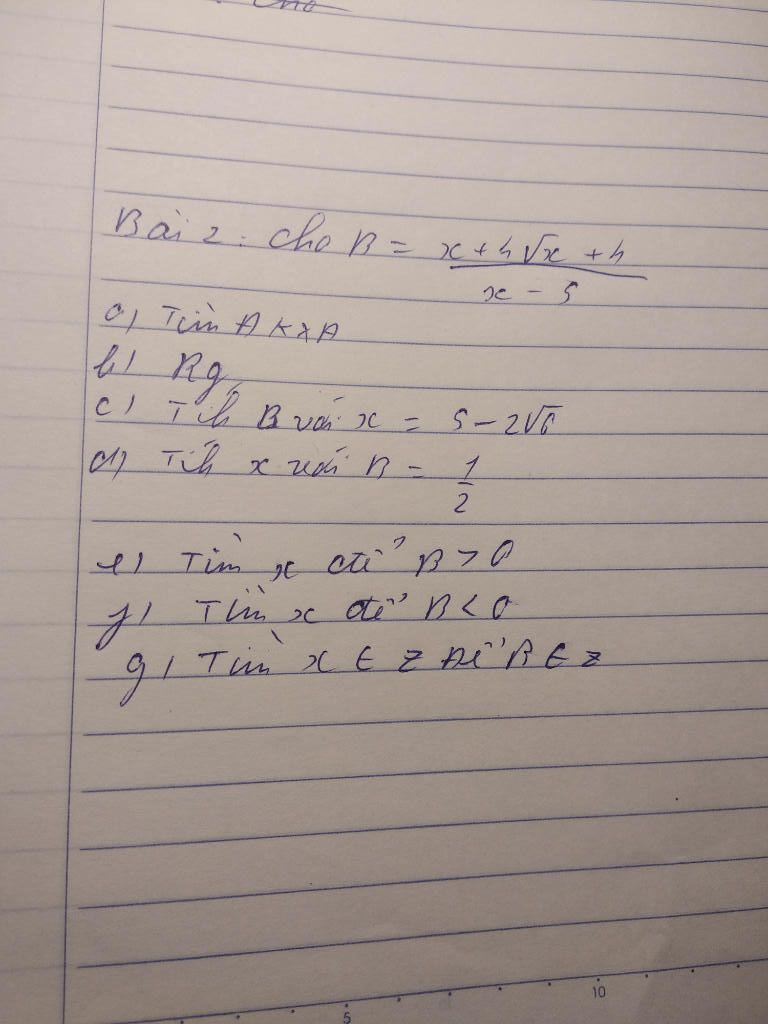 Cho
Bài 2: Cho B = x + 4√x + 4
x - 5
a) Tìm ĐKXĐ
b) Rg
c) Tíh B với x = 5 - 2√6
d) Tíh x với B = 1
2
e) Tìm x để B > 0
f) Tìm x để B < 0
g) Tìm x ∈ Z Để B ∈ Z
5
10